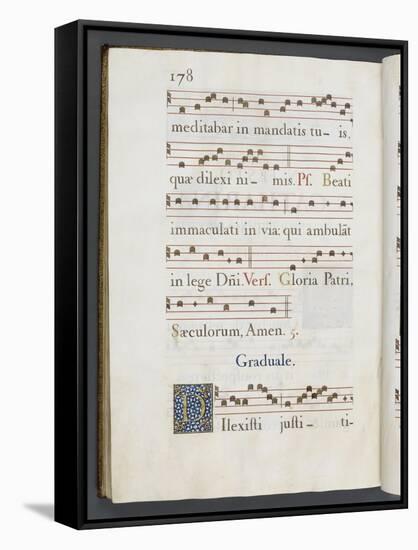 178
meditabar in mandatis tu- is,
quæ dilexi ni- mis. Pſ. Beati
immaculati in via: qui ambulãt
in lege Dñi. Verſ. Gloria Patri,
Sæculorum, Amen. 5.
Graduale.
DIlexiſti juſti- ti-